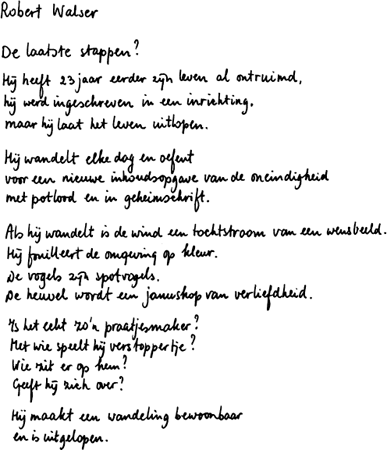 Robert Walser
De laatste stappen?
Hij heeft 23 jaar eerder zijn leven al ontruimd,
hij werd ingeschreven in een inrichting,
maar hij laat het leven uitlopen.
Hij wandelt elke dag en oefent
voor een nieuwe inhoudsopgave van de oneindigheid
met potlood en in geheimschrift.
Als hij wandelt is de wind een tochtstroom van een wensbeeld.
Hij fouilleert de omgeving op kleur.
De vogels zijn spotvogels.
De heuvel wordt een januskop van verliefdheid.
Is het echt zo'n praatjesmaker?
Met wie speelt hij verstoppertje?
Wie zit er op hem?
Geeft hij zich over?
Hij maakt een wandeling bewoonbaar
en is uitgelopen.